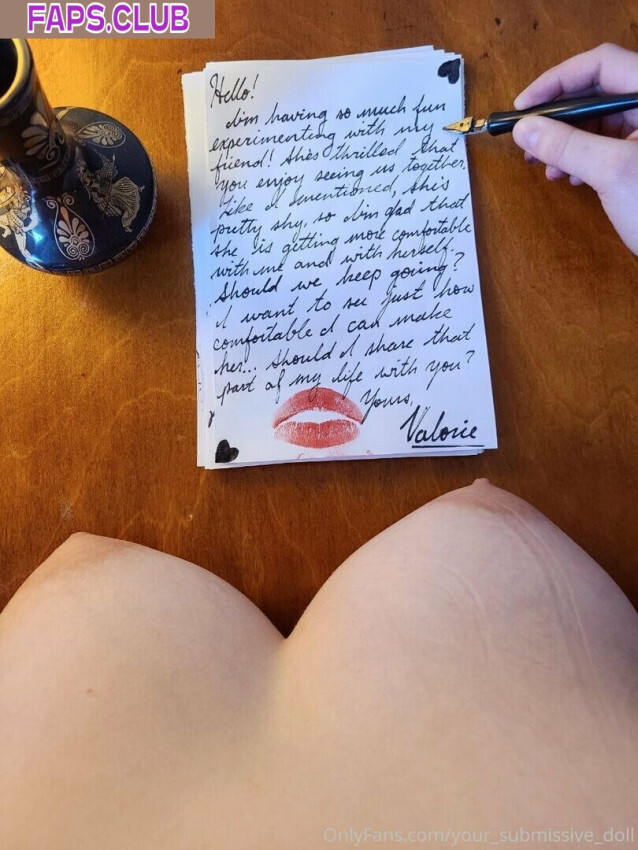 FAPS.CLUB
Hello!
I'm having so much fun
experimenting with my
friend! She's thrilled that
you enjoy seeing us together.
Like I mentioned, she's
pretty shy, so I'm glad that
she is getting more comfortable
with me and with herself.
Should we keep going?
I want to see just how
comfortable I can make
her... Should I share that
part of my life with you?
Yours,
Valorie
OnlyFans.com/your_submissive_doll